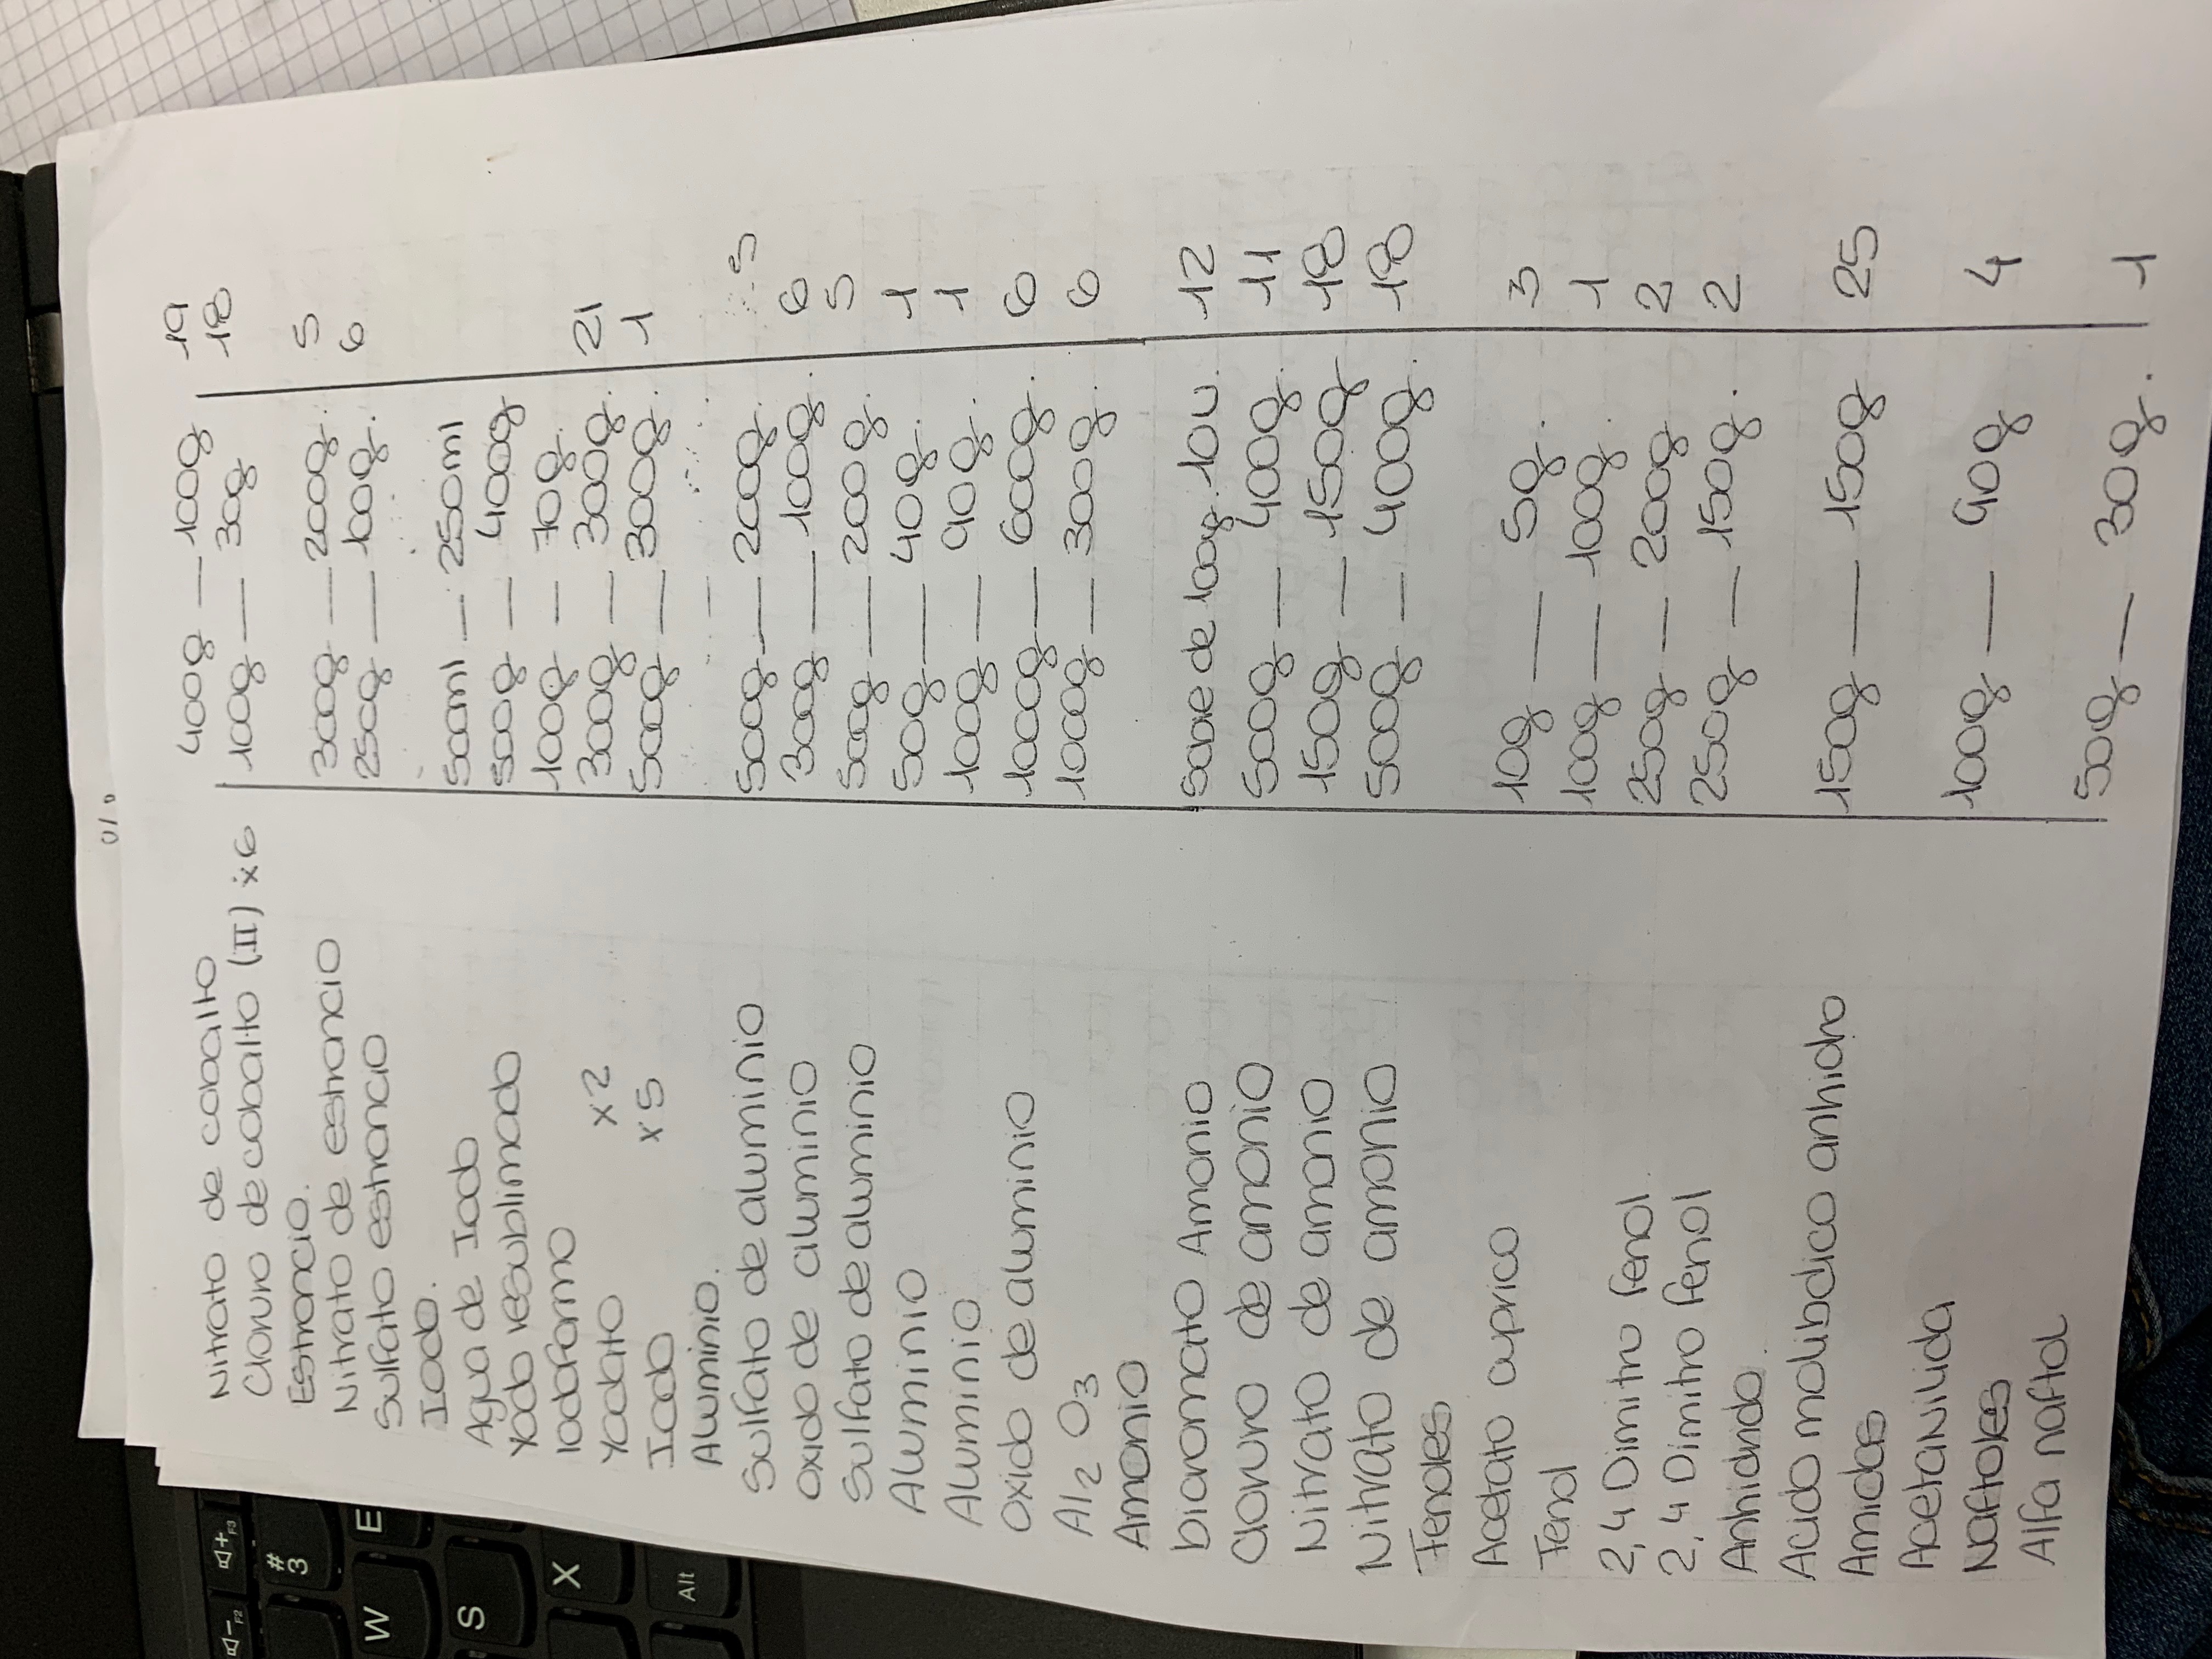 0/0
Nitrato de cobalto 400g — 100g 19
Cloruro de cobalto (II) x6 100g — 30g 18
Estroncio.
Nitrato de estroncio 300g — 200g. 5
Sulfato estroncio 250g — 100g. 6
Iodo.
Agua de Iodo 500ml — 250ml
Yodo resublimado 500g — 400g
Iodoformo 100g — 70g.
Yodato x2 300g — 300g. 21
Iodo x5 500g — 300g. 1
Aluminio.
Sulfato de aluminio 500g — 200g. 5
Oxido de aluminio 300g — 100g. 6
Sulfato de aluminio 500g — 200g. 5
Aluminio 50g — 40g. 1
Aluminio 100g — 90g. 1
Oxido de aluminio 1000g — 600g. 6
Al2 O3 1000g — 300g. 6
Amonio
bicromato Amonio Sobre de 100g. 10U. 12
Cloruro de amonio 500g — 400g. 11
Nitrato de amonio 150g — 150g 18
Nitrato de amonio 500g — 400g. 18
Fenoles
Acetato cuprico 10g — 5g. 3
Fenol 100g — 100g. 1
2,4 Dimitro fenol. 250g — 200g 2
2,4 Dimitro fenol 250g — 150g. 2
Anhidrido.
Acido molibdico anhidro 150g — 150g 25
Amidas
Acetanilida 100g — 90g 4
Naftoles
Alfa naftol 50g — 30g. 1
# 3 F2 F3
W E
S
X
Alt